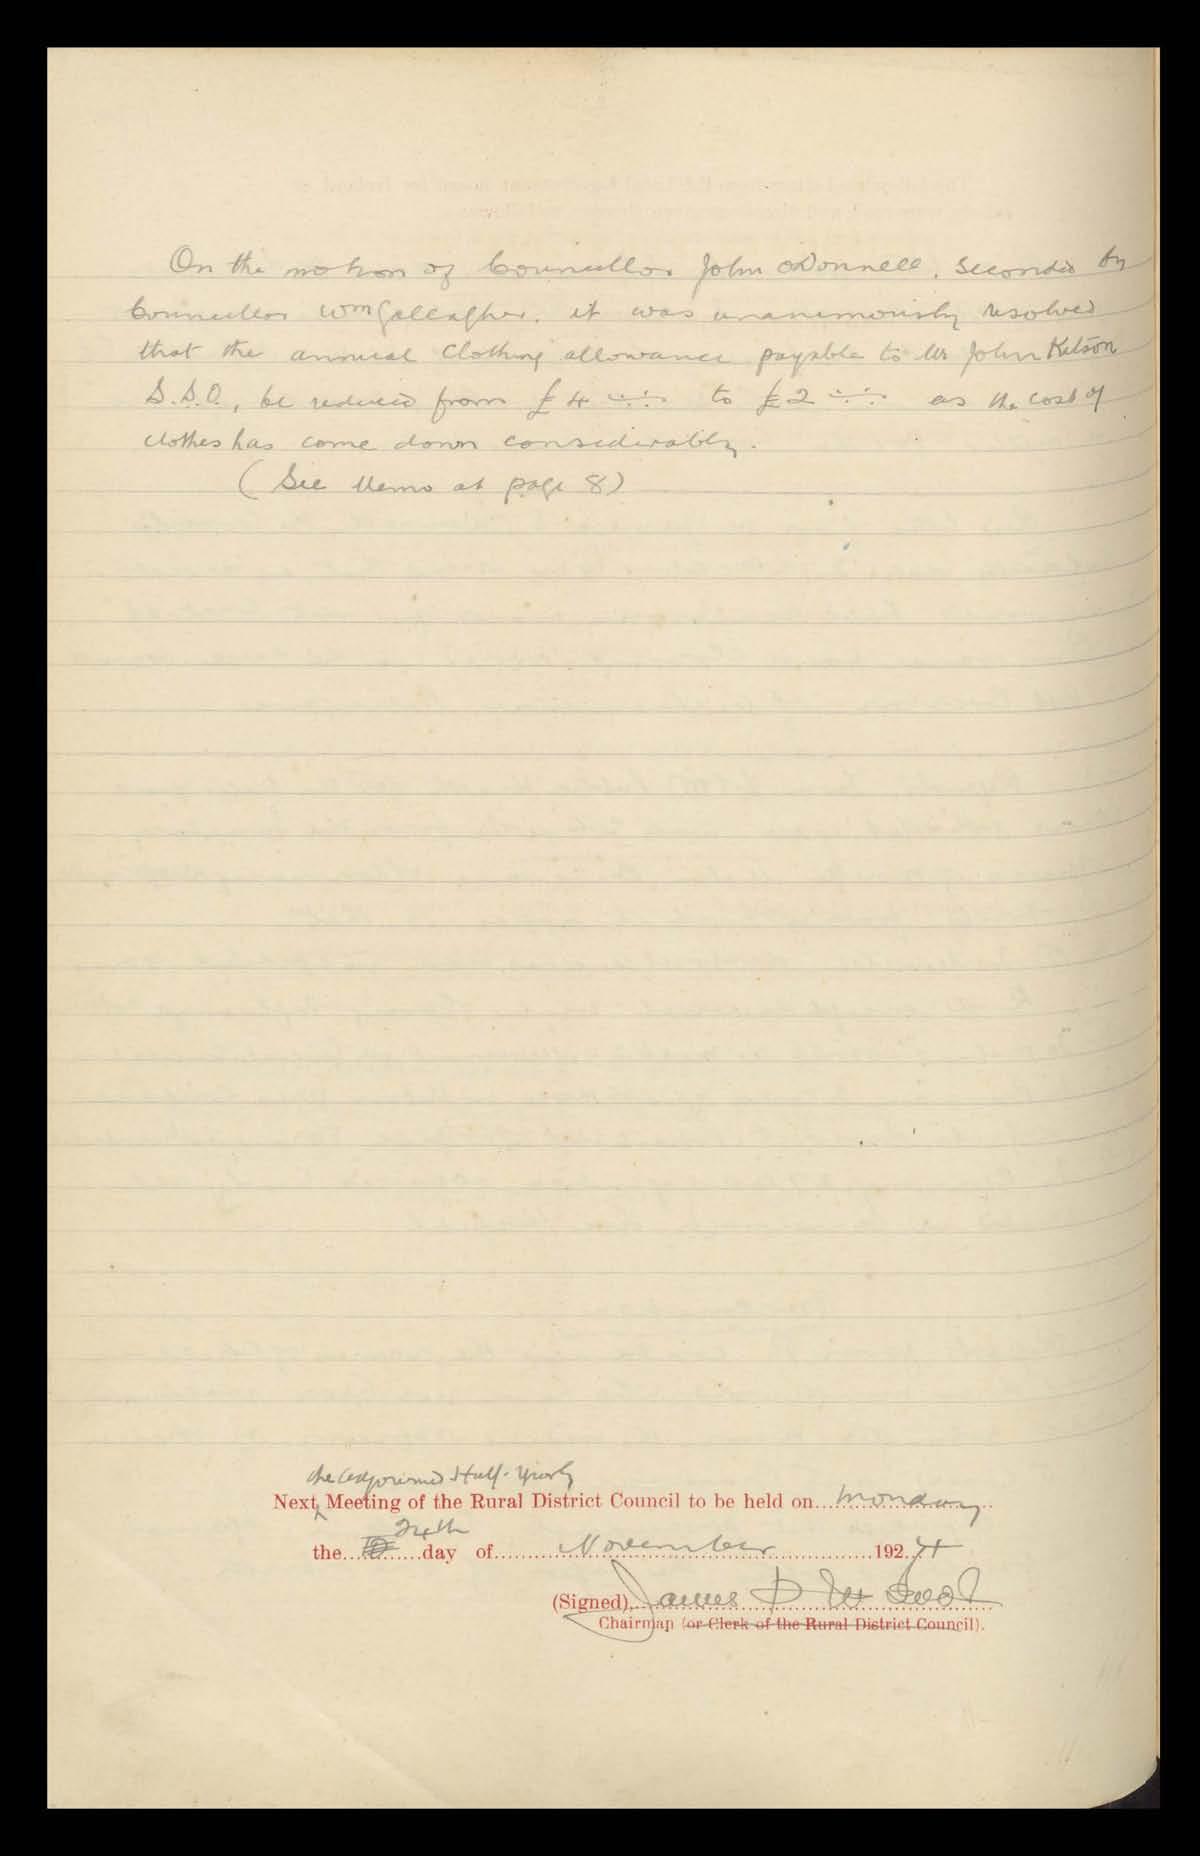 On the motion of Councillor John O'Donnell, Seconded by
Councillor Wm Gallagher, it was unanimously resolved
that the annual Clothing allowance payable to Mr John Kelson
S.S.O., be reduced from £4 -:-:- to £2 -:-:- as the cost of
clothes has come down considerably.
(See Memo at page 8)
the adjourned Half-Yearly
Next Meeting of the Rural District Council to be held on Monday
24th
the day of November 1924
(Signed), James D
Chairman (or Clerk of the Rural District Council).